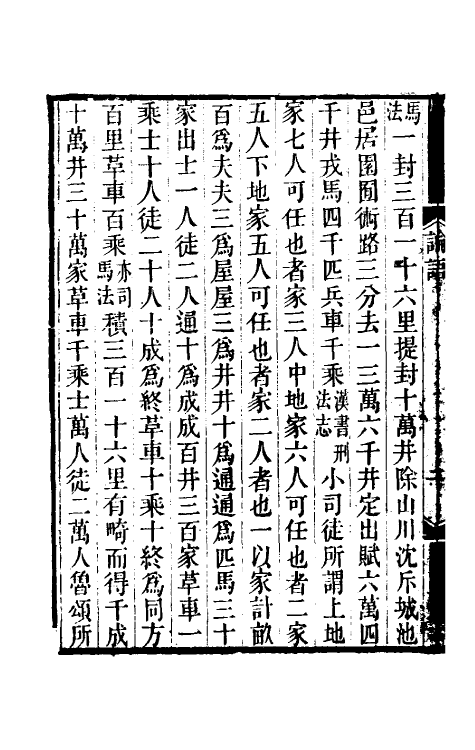 論語
馬法一封三百一十六里提封十萬井除山川沈斥城池
邑居園囿術路三分去一三萬六千井定出賦六萬四
千井戎馬四千匹兵車千乘漢書刑法志小司徒所謂上地
家七人可任也者家三人中地家六人可任也者二家
五人下地家五人可任也者家二人者也一以家計畝
百爲夫夫三爲屋屋三爲井井十爲通通爲匹馬三十
家出士一人徒二人通十爲成成百井三百家草車一
乘士十人徒二十人十成爲終草車十乘十終爲同方
百里草車百乘亦司馬法積三百一十六里有畸而得千成
十萬井三十萬家草車千乘士萬人徒二萬人魯頌所